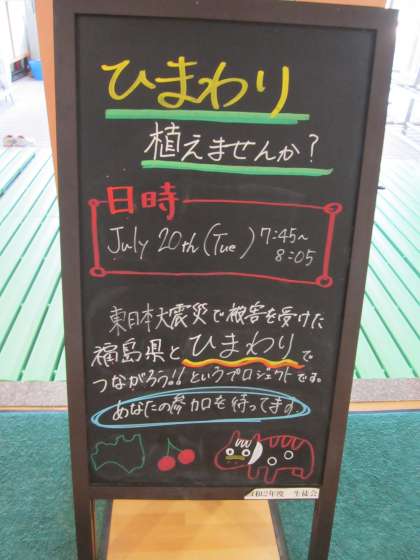 ひまわり
植えませんか?
日時
July 20th (Tue) 7:45~
8:05
東日本大震災で被害を受けた
福島県とひまわりで
つながろう!!というプロジェクトです。
あなたの参加を待ってます
令和2年度 生徒会